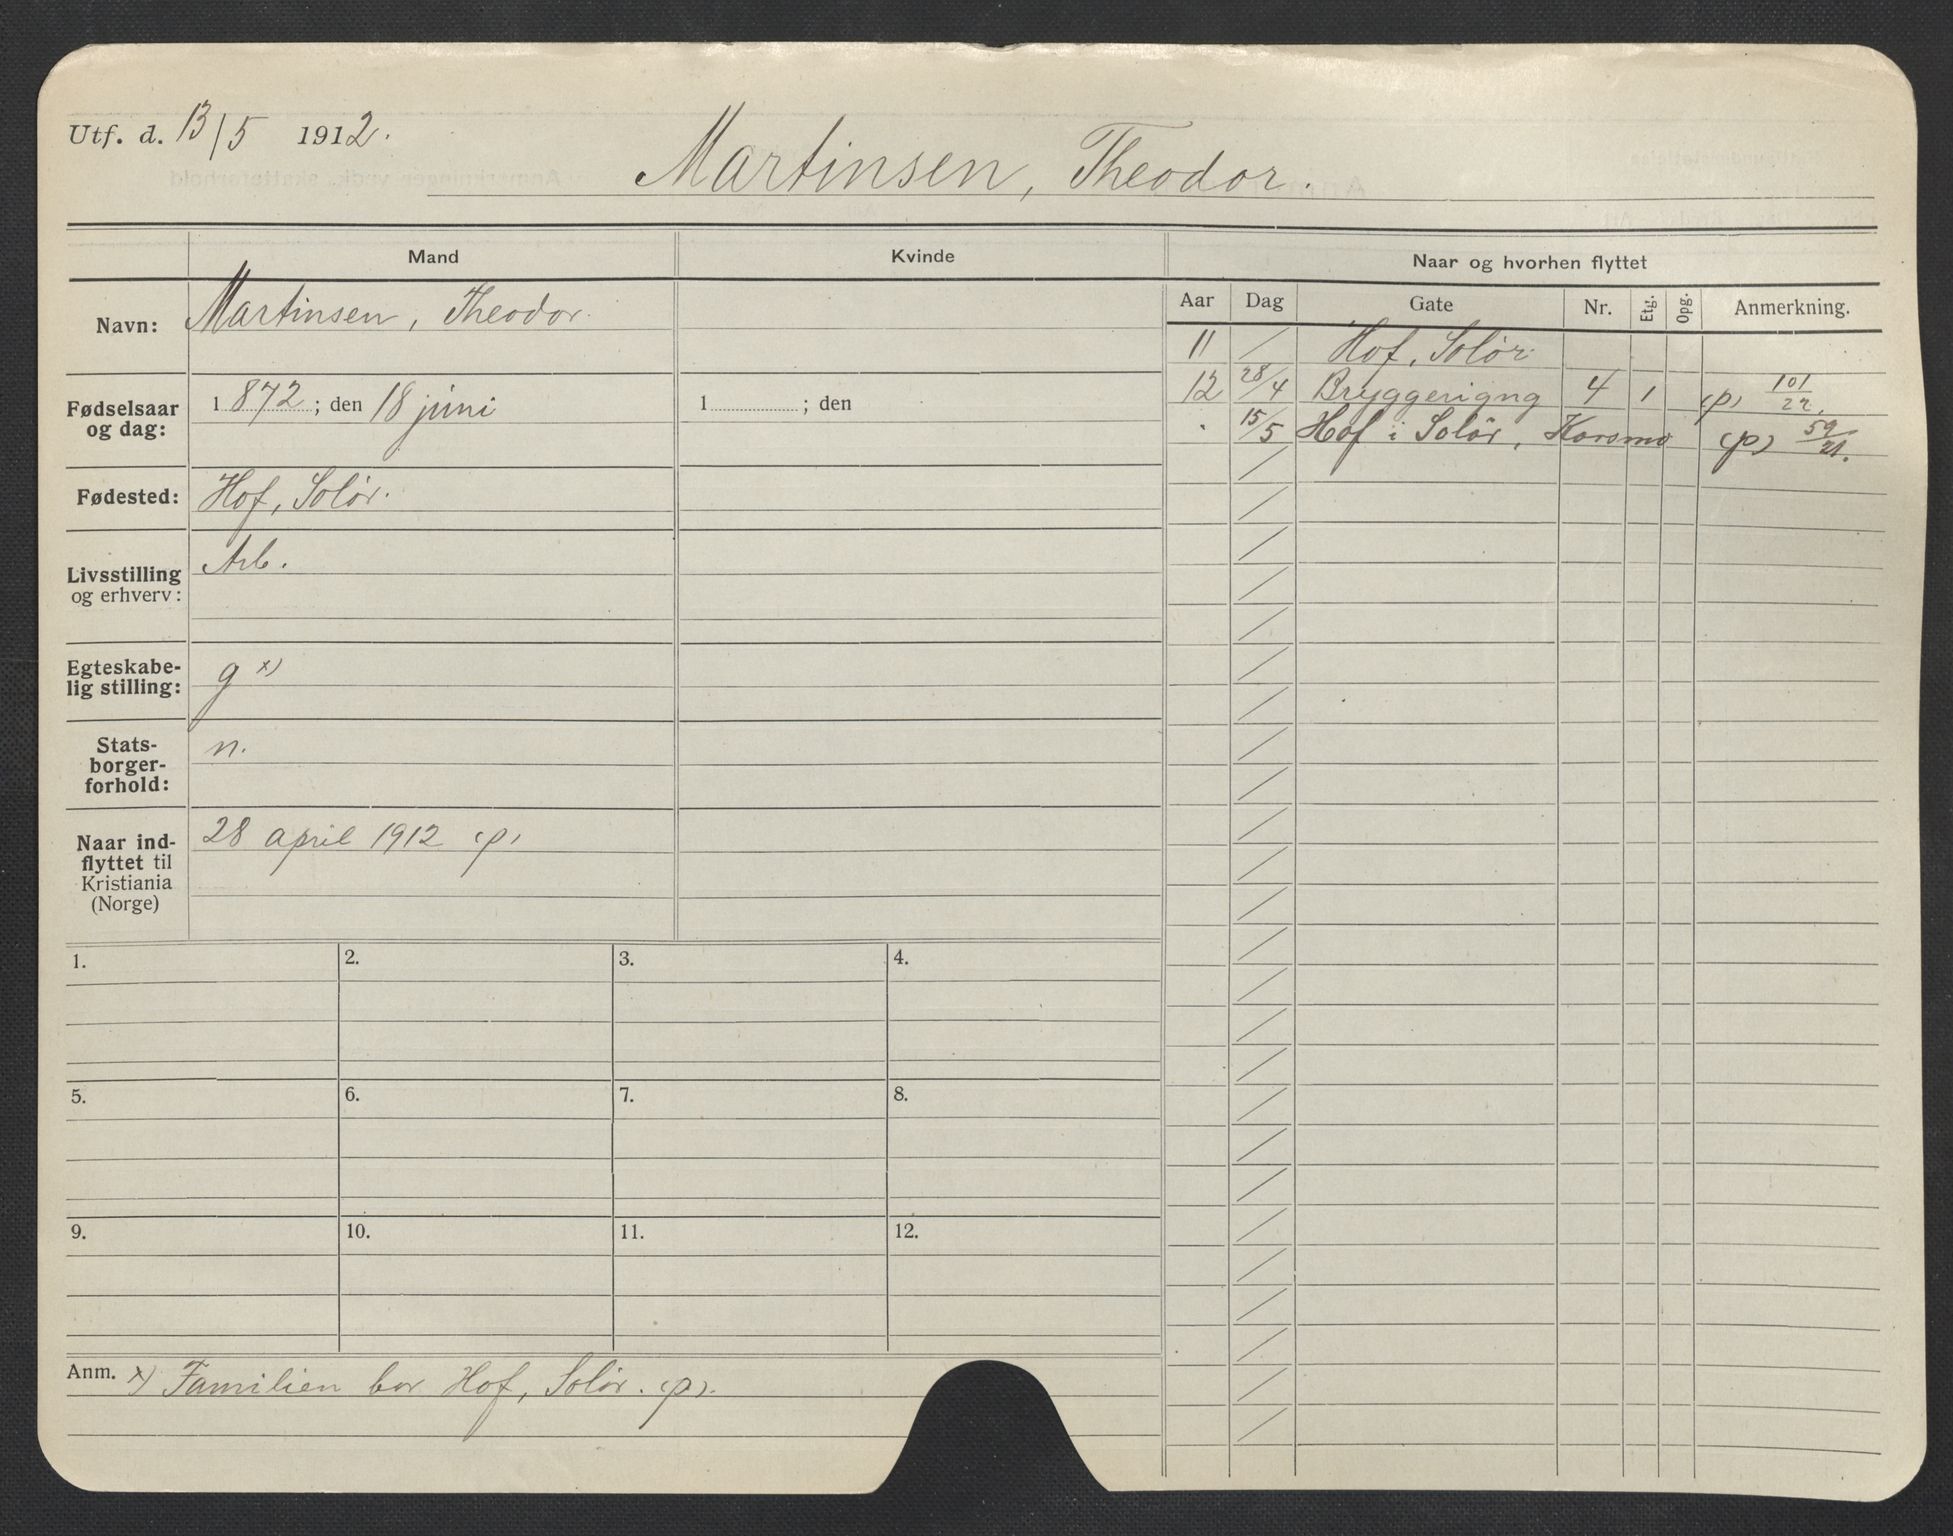 Utf. d. 13/5 1912.
Martinsen, Theodor.
Mand
Kvinde
Naar og hvorhen flyttet
Navn: Martinsen, Theodor.
Fødselsaar og dag: 1872; den 18 juni
1 ; den
Fødested: Hof, Solør.
Livsstilling og erhverv: Arb.
Egteskabe-
lig stilling: g x)
Stats-
borger-
forhold: n.
Naar ind-
flyttet til
Kristiania
(Norge) 28 april 1912 (p)
Aar Dag Gate Nr. Etg. Opg. Anmerkning.
11 / Hof, Solør.
12 28/4 Bryggerigng 4 1 (p) 101/22.
" 15/5 Hof i Solör, Korsmo (p) 59/21.
1. 2. 3. 4.
5. 6. 7. 8.
9. 10. 11. 12.
Anm. x) Familien bor Hof, Solör. (p).